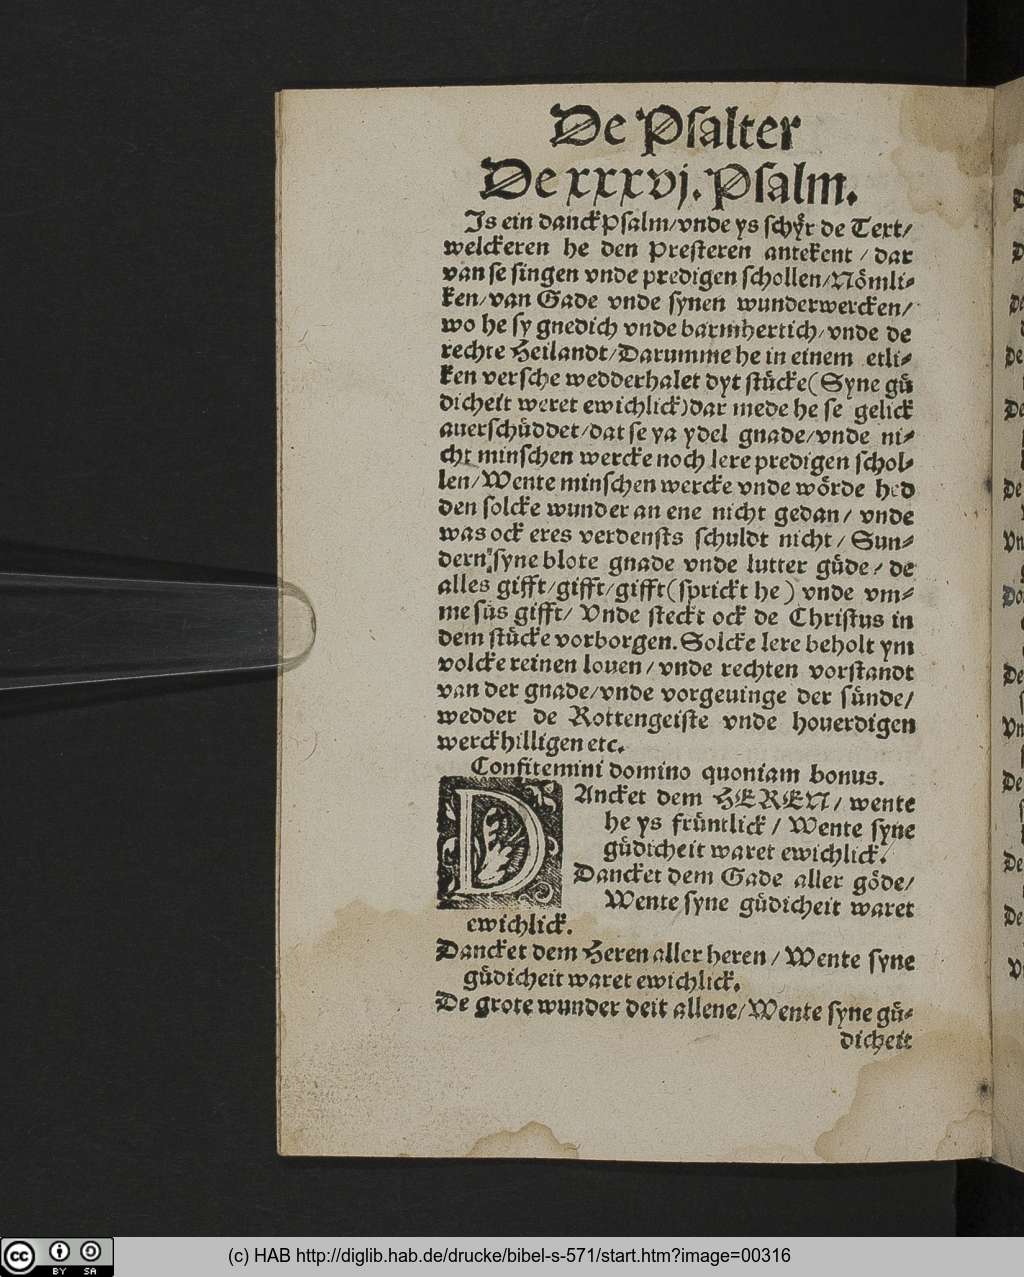 De Psalter
De xxxvj. Psalm.
Js ein danckPsalm/vnde ys schyͤr de Text/
welckeren he den Presteren antekent / dar
van se singen vnde predigen schollen/Noͤmli⸗
ken/van Gade vnde synen wunderwercken/
wo he sy gnedich vnde barmhertich/vnde de
rechte Heilandt/Darumme he in einem etli⸗
ken versche wedderhalet dyt stuͤcke(Syne guͤ
dicheit weret ewichlick)dar mede he se gelick
auerschuͤddet/dat se ya ydel gnade/vnde ni⸗
cht minschen wercke noch lere predigen schol⸗
len/Wente minschen wercke vnde woͤrde hed
den solcke wunder an ene nicht gedan/ vnde
was ock eres verdensts schuldt nicht/ Sun⸗
dern syne blote gnade vnde lutter guͤde/ de
alles gifft/gifft/gifft(sprickt he) vnde vm⸗
me suͤs gifft/ Vnde steckt ock de Christus in
dem stuͤcke vorborgen.Solcke lere beholt ym
volcke reinen louen/vnde rechten vorstandt
van der gnade/vnde vorgeuinge der suͤnde/
wedder de Rottengeiste vnde houerdigen
werckhilligen etc.
Confitemini domino quoniam bonus.
DAncket dem HEREN/ wente
he ys fruͤntlick/ Wente syne
guͤdicheit waret ewichlick.
Dancket dem Gade aller goͤde/
Wente syne guͤdicheit waret
ewichlick.
Dancket dem Heren aller heren / Wente syne
guͤdicheit waret ewichlick.
De grote wunder deit allene/Wente syne guͤ⸗
dicheit
(c) HAB http://diglib.hab.de/drucke/bibel-s-571/start.htm?image=00316
cc BY SA